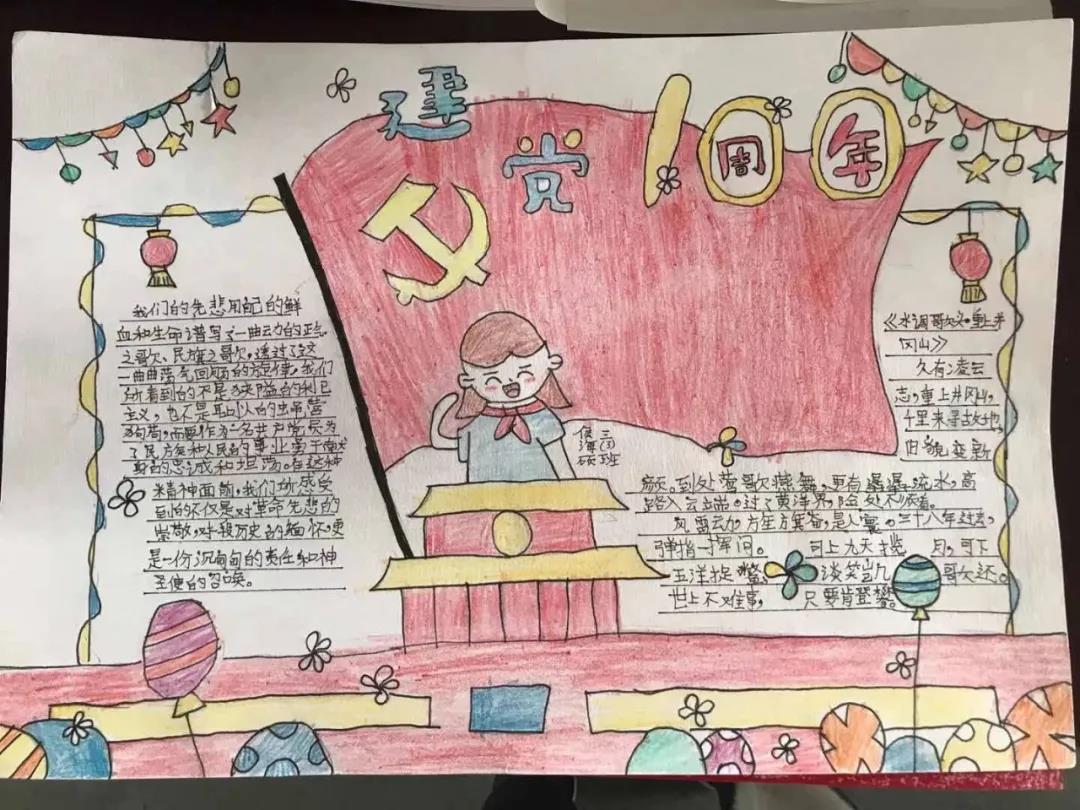 建党100周年
我们的先悲用自己的鲜
血和生命谱写了一曲曲动的正气
之歌、民族之歌,透过了这
一曲曲荡气回肠的旋律,我们
所看到的不是狭隘的利己
主义,也不是
而要作为一名共产党员为
了民族和人民的事业
的忠诚和坦荡。在这种
精神面前,我们所感受
到的不仅是对革命先悲的
崇敬,对段历史的缅怀,更
是一份沉甸甸的责任和神
圣使的召唤。
侯海硕
三(3)班
《水调歌头·重上井
冈山》
久有凌云
志,重上井冈山,
千里来寻故地,
旧貌变新
颜。到处莺歌燕舞,更有潺潺流水,高
路入云端。过了黄洋界,险处不须看。
风雷动,旌旗奋,是人寰。三十八年过去,
弹指一挥间。 可上九天揽 月,可下
五洋捉鳖, 谈笑凯 歌还。
世上不难事, 只要肯登攀。